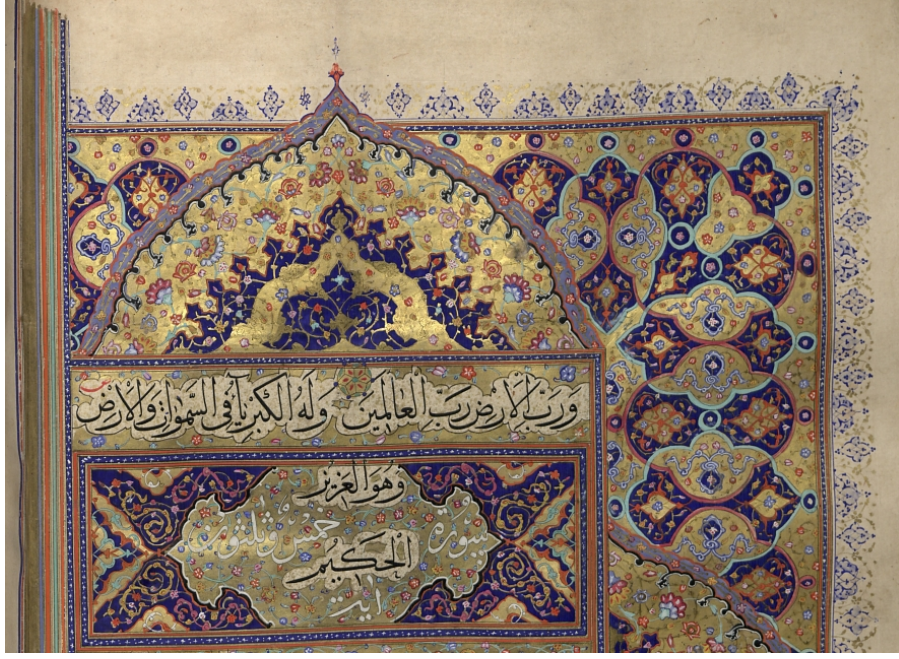 وَرَبِّ الْاَرْضِ رَبِّ الْعَالَمِينَ وَلَهُ الْكِبْرِيَآءُ فِي السَّمٰوَاتِ وَالْاَرْضِ
وَهُوَ الْعَزِيزُ
سورة خمس وثلثون
الْحَكِيمُ
اية